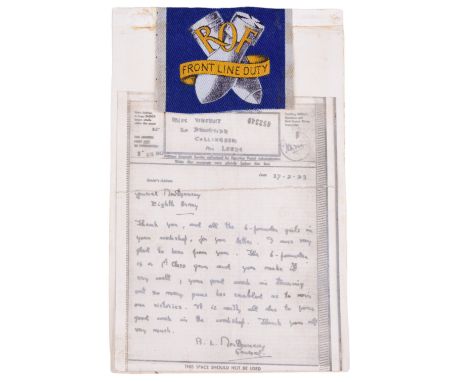 ROF
FRONT LINE DUTY
MISS VINCENT
20
COLLINGHAM
Nr LEEDS
Sender's Address
Date 27-2-43
General Montgomery
Eighth Army
Thank you, and all the 6-pounder girls in
your workshop, for your letter. I was very
glad to hear from you. The 6-pounder
is a 1st Class gun and you make it
very well; your good work in turning
out so many guns has enabled us to win
our victories. It is really all due to your
good work in the workshop. Thank you all
very much.
B. L. Montgomery
General
THIS SPACE SHOULD NOT BE USED